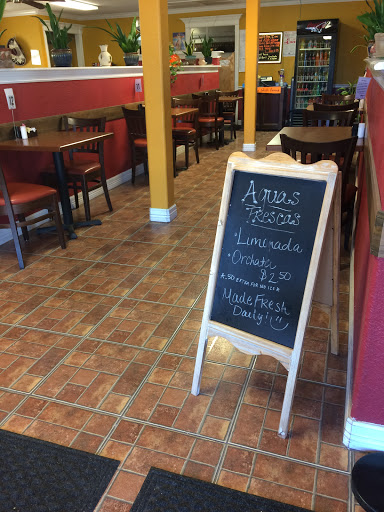 Aguas
Frescas
• Limonada
• Orchata
$2.50
*.50 extra for no ice *
Made Fresh
Daily!!